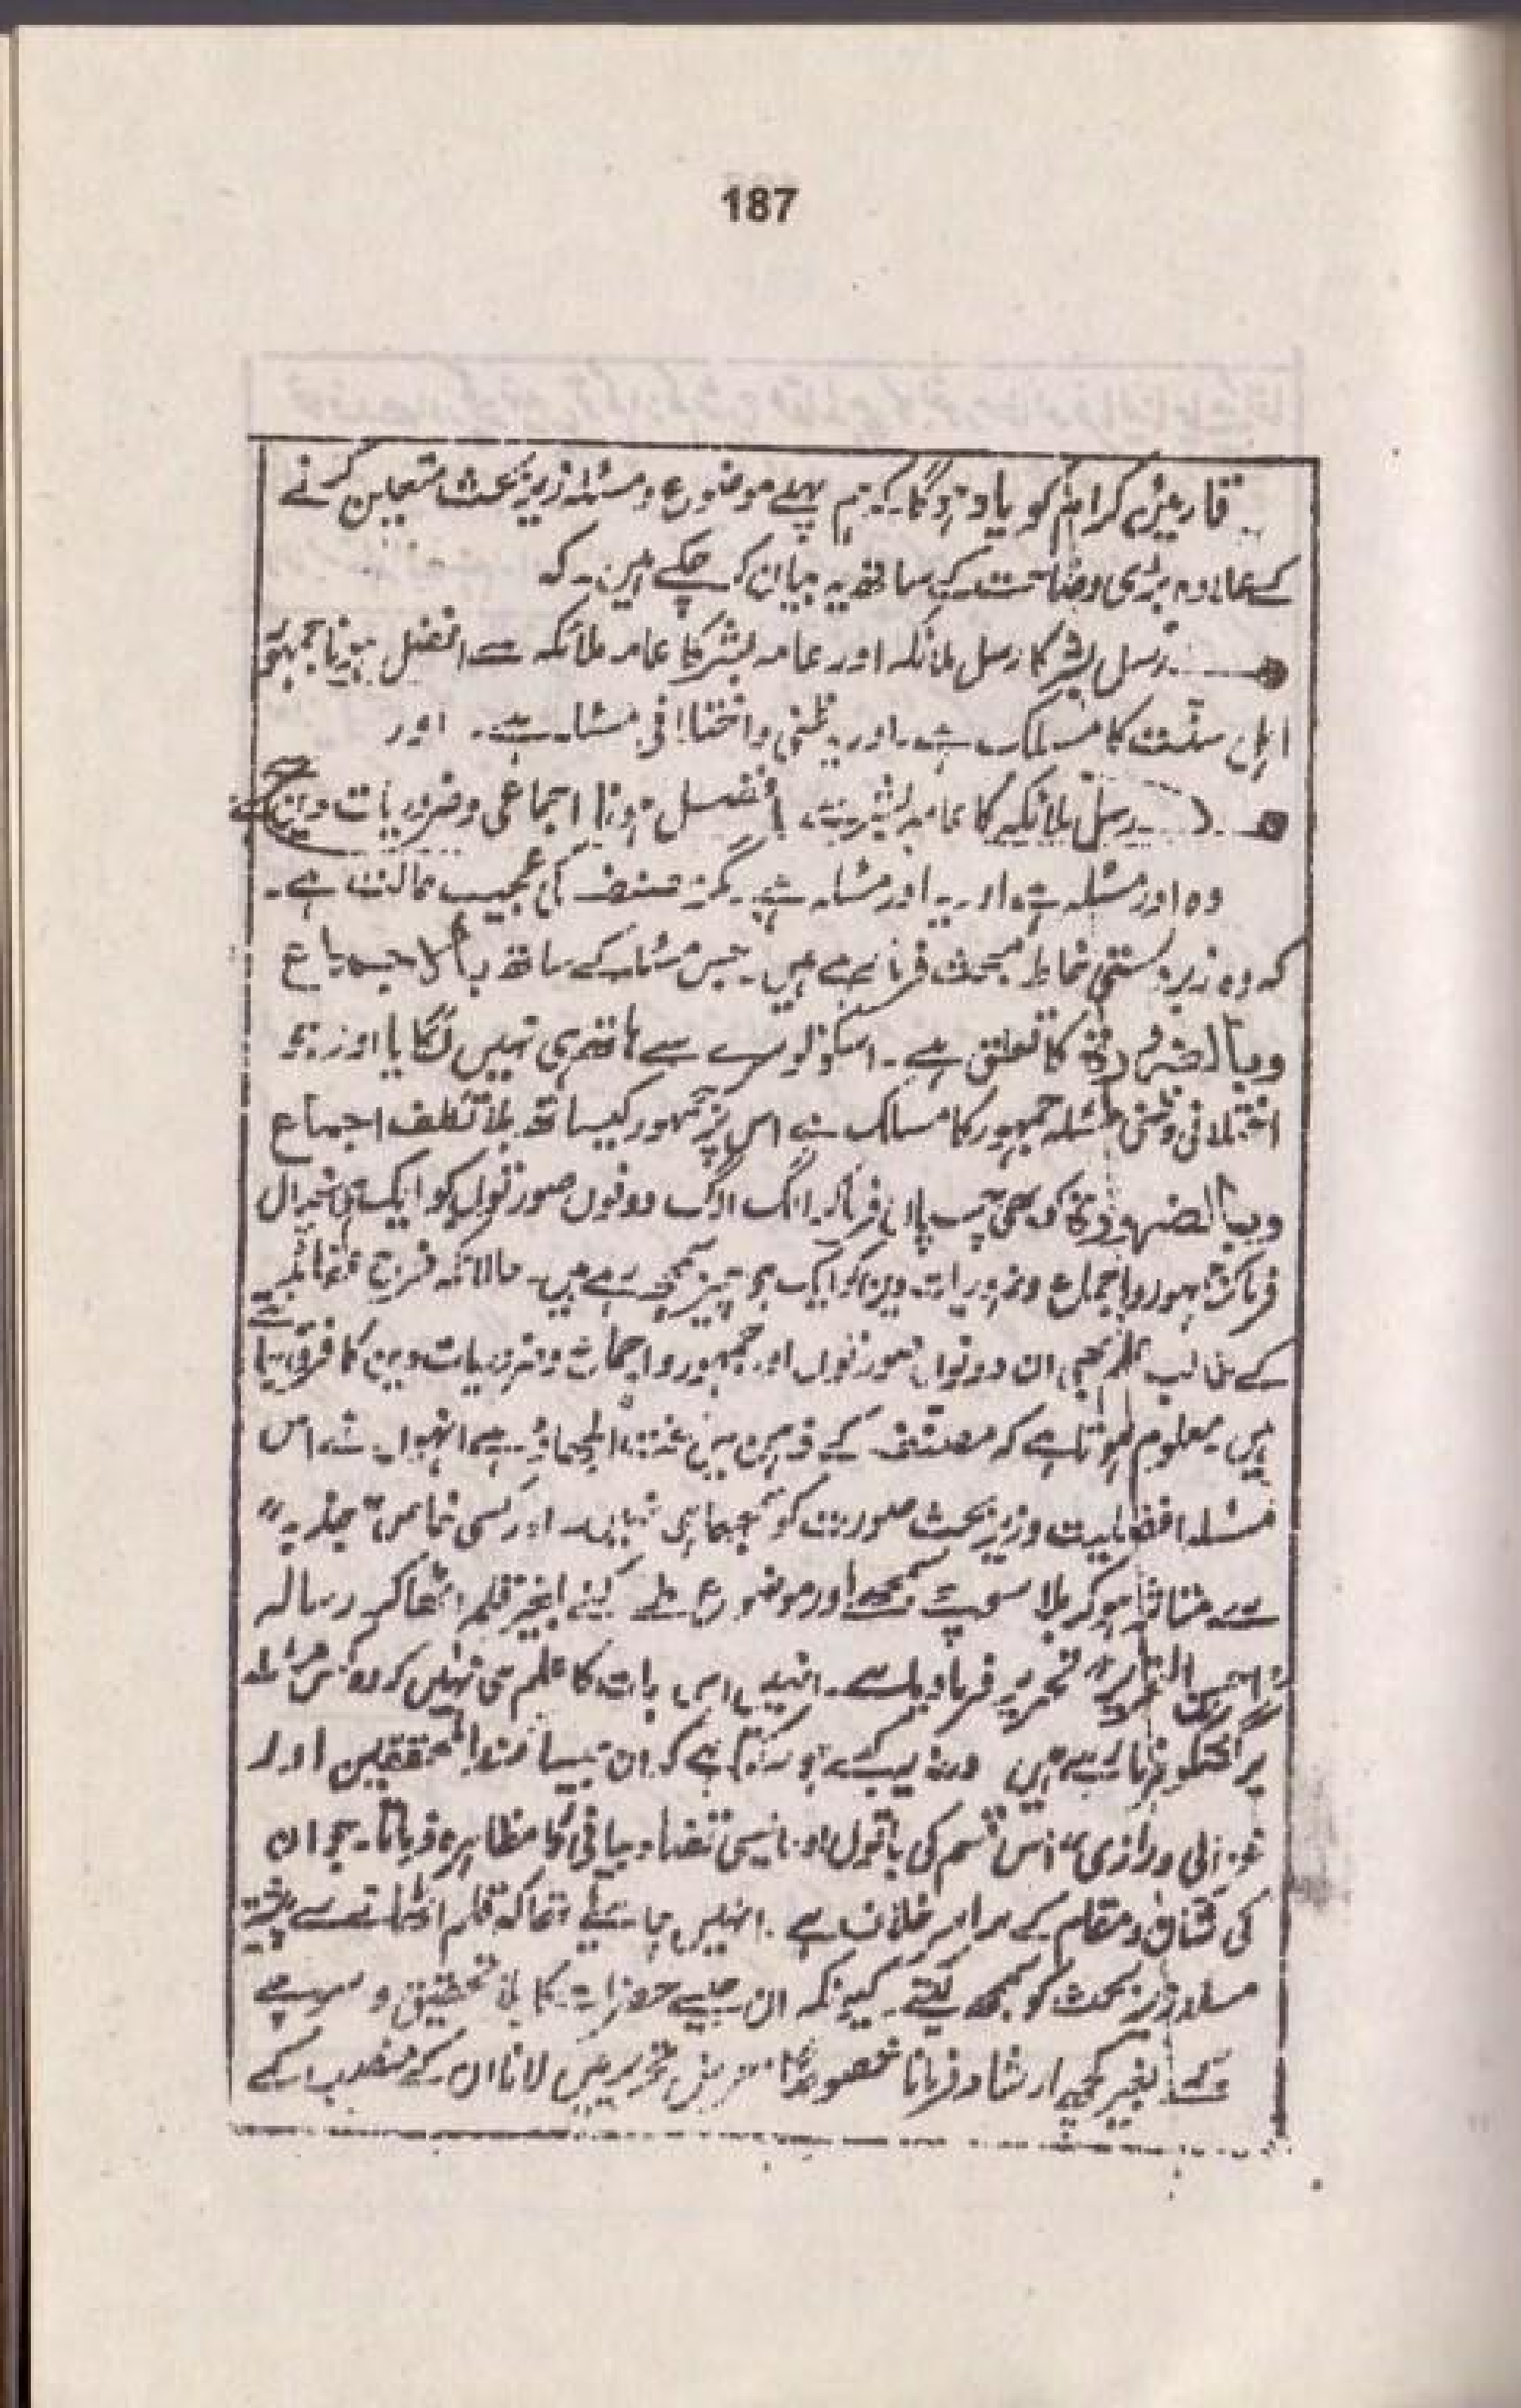 187
قارئین کرام کو یاد ہوگا۔ کہ ہم پہلے موضوع و مسئلہ زیر بحث متعین کرنے
کے علاوہ بڑی وضاحت کے ساتھ یہ بیان کر چکے ہیں۔ کہ
رسل بشر کا رسل ملائکہ اور عامہ بشر کا عامہ ملائکہ سے افضل ہونا جمہور
اہل سنت کا مسلک ہے۔ اور یہ ظنی و اختلافی مسئلہ ہے۔ اور
رسل ملائکہ کا عامہ بشر سے افضل ہونا اجماعی و ضروریات دین سے ہے
وہ اور مسئلہ ہے اور یہ اور مسئلہ ہے۔ مگر مصنف کی عجیب حالت ہے۔
کہ وہ زبردستی خلط مبحث فرما رہے ہیں۔ جس مسئلہ کے ساتھ بالاجماع
وبالضرورۃ کا تعلق ہے۔ اسکو تو سرے سے ہاتھ ہی نہیں لگایا اور جو
اختلافی و ظنی مسئلہ جمہور کا مسلک ہے اس پر جمہور کیساتھ بلا تکلف اجماع
وبالضرورۃ کو بھی چسپاں فرما کر الگ الگ دونوں صورتوں کو ایک ہی خیال
فرما کر جمہور و اجماع و ضروریات دین کو ایک ہی چیز سمجھ رہے ہیں۔ حالانکہ شرح عقائد
کے طالب علم بھی ان دونوں صورتوں اور جمہور و اجماع و ضروریات دین کا فرق جانتے
ہیں معلوم ہوتا ہے کہ مصنف کے ذہن میں الجھاؤ ہے انہوں نے اس
مسئلہ افضلیت و زیر بحث صورت کو سمجھا ہی نہیں۔ اور کسی خاص "جذبہ"
سے متاثر ہو کر بلا سوچے سمجھے اور موضوع طے کئے بغیر قلم اٹھا کر رسالہ
تحریر فرما دیا ہے۔ انہیں اس بات کا علم ہی نہیں کہ وہ کس مسئلہ
پر گفتگو فرما رہے ہیں ورنہ یہ کیسے ہو سکتا ہے کہ ان جیسا زبدۃ المحققین اور
غزالی و رازی" اس قسم کی باتوں اور ایسی تضاد بیانی کا مظاہرہ فرماتا۔ جو ان
کی شان و مقام کے سراسر خلاف ہے۔ انہیں چاہئیے تھا کہ قلم اٹھانے سے پیشتر
مسئلہ زیر بحث کو سمجھ لیتے۔ کیونکہ ان جیسے حضرات کا بلا تحقیق و سوچے
سمجھے بغیر کچھ ارشاد فرمانا خصوصاً معرض تحریر میں لانا ان کے منصب کے